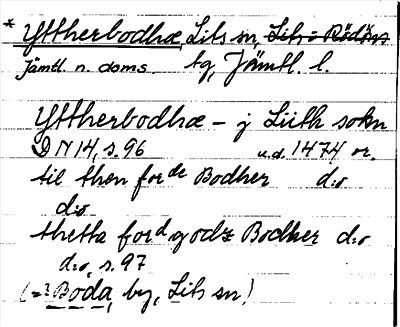 * Yttherbodhæ, Lits sn, Lits = Rödöns
Jämtl. n. doms. tg, Jämtl. l.
Yttherbodhæ – j Lith sokn
DN 14, s. 96 u.d. 1474 or.
til then for de Bodher d:o
d:o
thetta for d godz Bodher d:o
d:o, s. 97
(=? Boda, by, Lits sn)